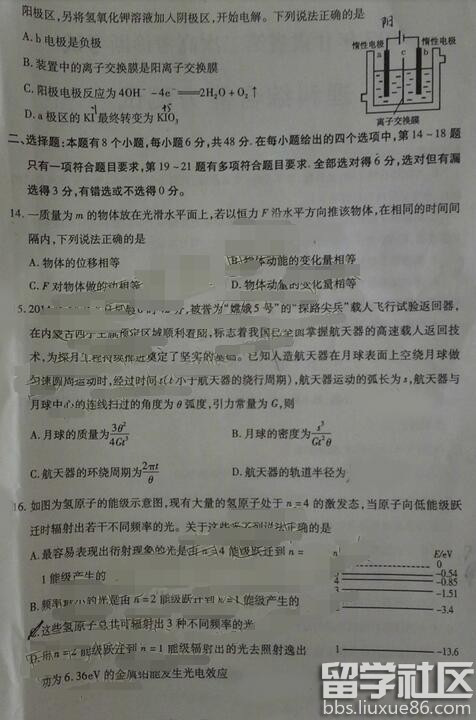 阳极区,另将氢氧化钾溶液加入阴极区,开始电解。下列说法正确的是
A. b电极是负极
B. 装置中的离子交换膜是阳离子交换膜
C. 阳极电极反应为4OH⁻-4e⁻=2H₂O+O₂↑
D. a极区的KI最终转变为KIO₃
阳
惰性电极
惰性电极
a c b
离子交换膜
二、选择题:本题有8个小题,每小题6分,共48分.在每小题给出的四个选项中,第14~18题
只有一项符合题目要求,第19~21题有多项符合题目要求.全部选对得6分,选对但有漏
选得3分,有错选或不选得0分。
14. 一质量为m的物体放在光滑水平面上,若以恒力F沿水平方向推该物体,在相同的时间间
隔内,下列说法正确的是
A. 物体的位移相等
B. 物体动能的变化量相等
C. F对物体做的功相等
D. 物体动量的变化量相等
5. 被誉为“嫦娥5号”的“探路尖兵”载人飞行试验返回器,
在内蒙古四子王旗预定区域顺利着陆,标志着我国已全面掌握航天器的高速载人返回技
术,为探月工程持续推进奠定了坚实的基础。已知人造航天器在月球表面上空绕月球做
匀速圆周运动时,经过时间t(t小于航天器的绕行周期),航天器运动的弧长为s,航天器与
月球中心的连线扫过的角度为θ弧度,引力常量为G,则
A. 月球的质量为3θ²/4Gt³
B. 月球的密度为s³/Gt²θ
C. 航天器的环绕周期为2πt/θ
D. 航天器的轨道半径为
16. 如图为氢原子的能级示意图,现有大量的氢原子处于n=4的激发态,当原子向低能级跃
迁时辐射出若干不同频率的光。关于这些光下列说法正确的是
A. 最容易表现出衍射现象的光是由n=4能级跃迁到n=
1能级产生的
B. 频率最小的光是由n=2能级跃迁到n=1能级产生的
C. 这些氢原子总共可辐射出3种不同频率的光
D. 用n=2能级跃迁到n=1能级辐射出的光去照射逸出
功为6.36eV的金属铂能发生光电效应
n E/eV
0
-0.54
4 -0.85
3 -1.51
-3.4
-13.6
留学社区
bbs.liuxue86.com